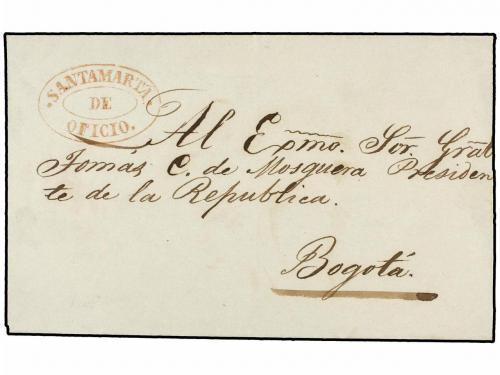 SANTAMARTA
DE
OFICIO.
Al Exmo. Sor. Gral
Tomás C. de Mosquera Presiden
te de la Republica.
Bogotá.